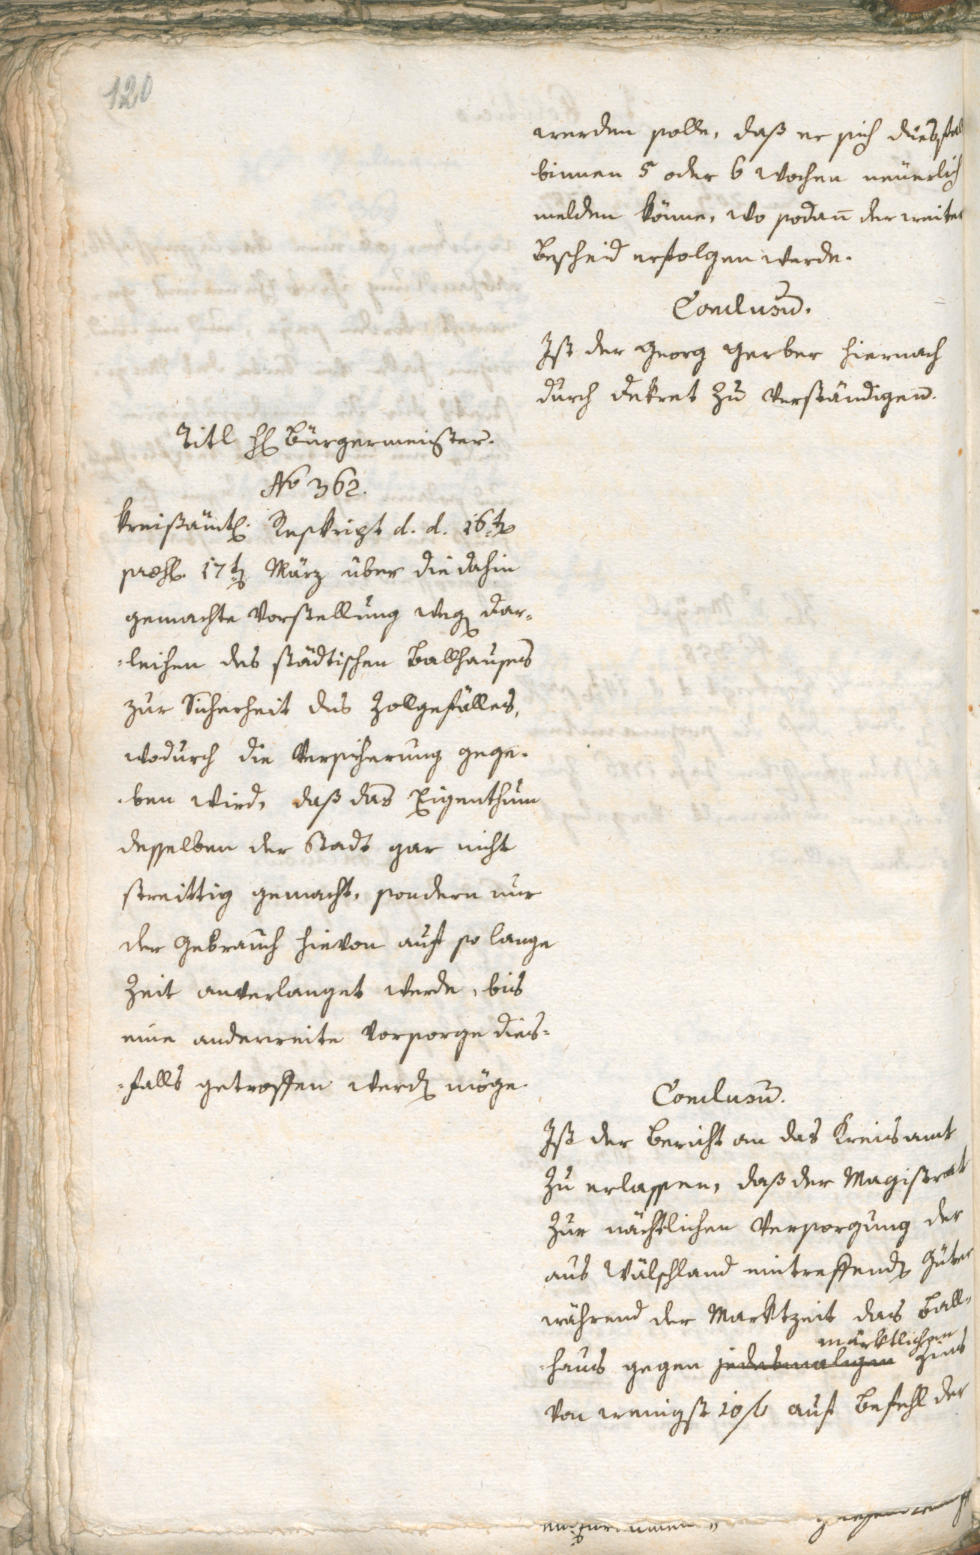 120
werden solle, daß er sich diesfal
binnen 5 oder 6 Wochen neuerlich
melden könne, wo sodann der weiter
Bescheid erfolgen werde.
Conclusum.
Ist der Georg Gerber hiernach
durch Dekret zu verständigen.
Titl H Bürgermeister.
No 362.
Kreisämtl. Reskript d. d. 16t
præs. 17t März über die dahin
gemachte Vorstellung weg Dar-
-leihen des städtischen Ballhauses
zur Sicherheit des Zollgefälles,
wodurch die Versicherung gege-
-ben wird, daß das Eigenthum
desselben der Stadt gar nicht
streittig gemacht, sondern nur
der Gebrauch hievon auf so lange
Zeit anverlanget werde, bis
eine anderweite Vorsorge dies-
-falls getroffen werd möge.
Conclusum.
Ist der Bericht an das Kreisamt
zu erlassen, daß der Magistrat
zur nächtlichen Versorgung der
aus Wälschland eintreffend Güter
während der Marktzeit das Ball-
märktlichen
-haus gegen jedesmaligen Zins
von wenigst 10 f auf Befehl der